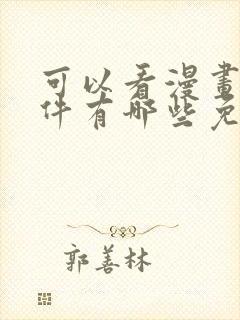 可以看漫畫
件有哪些免
郭善林